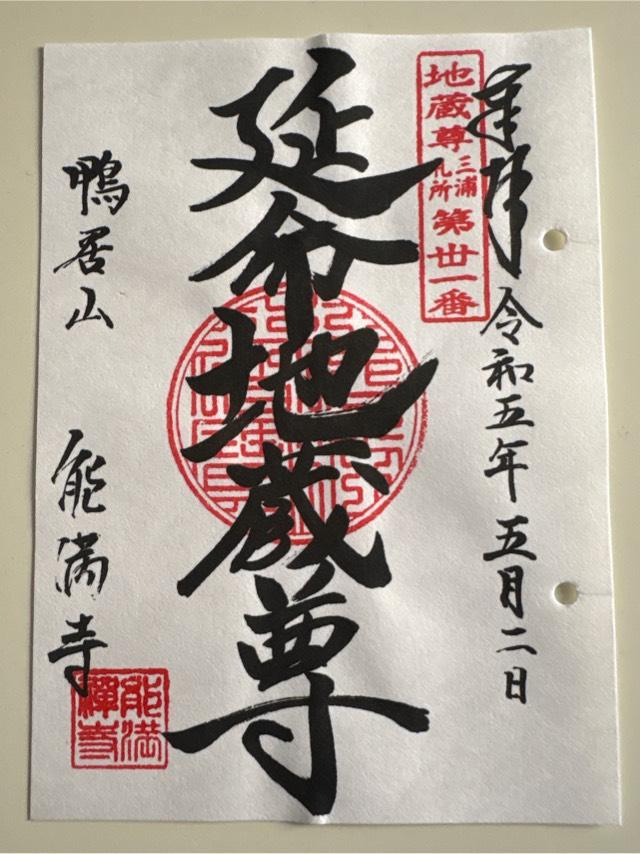 奉拝
令和五年五月二日
地蔵尊三浦札所第丗一番
延命地蔵尊
鴨居山
能満寺
能満禅寺